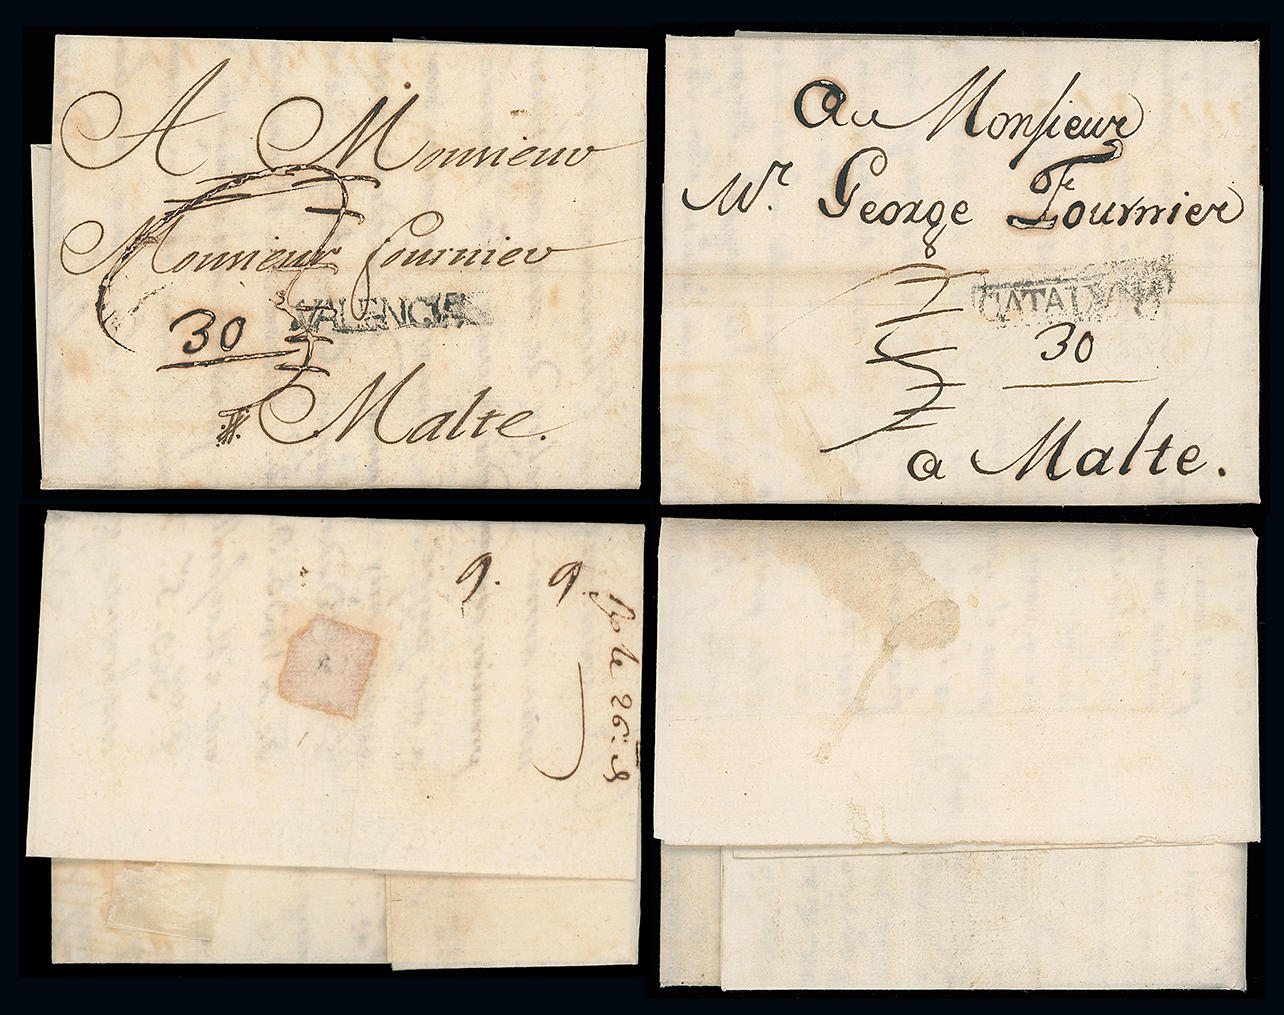 A Monsieur
Monsieur fournier
VALENCIA
30
Malte.
Au Monsieur
Mr. George Fournier
8
CATALUÑA
30
a Malte.
9. 9.